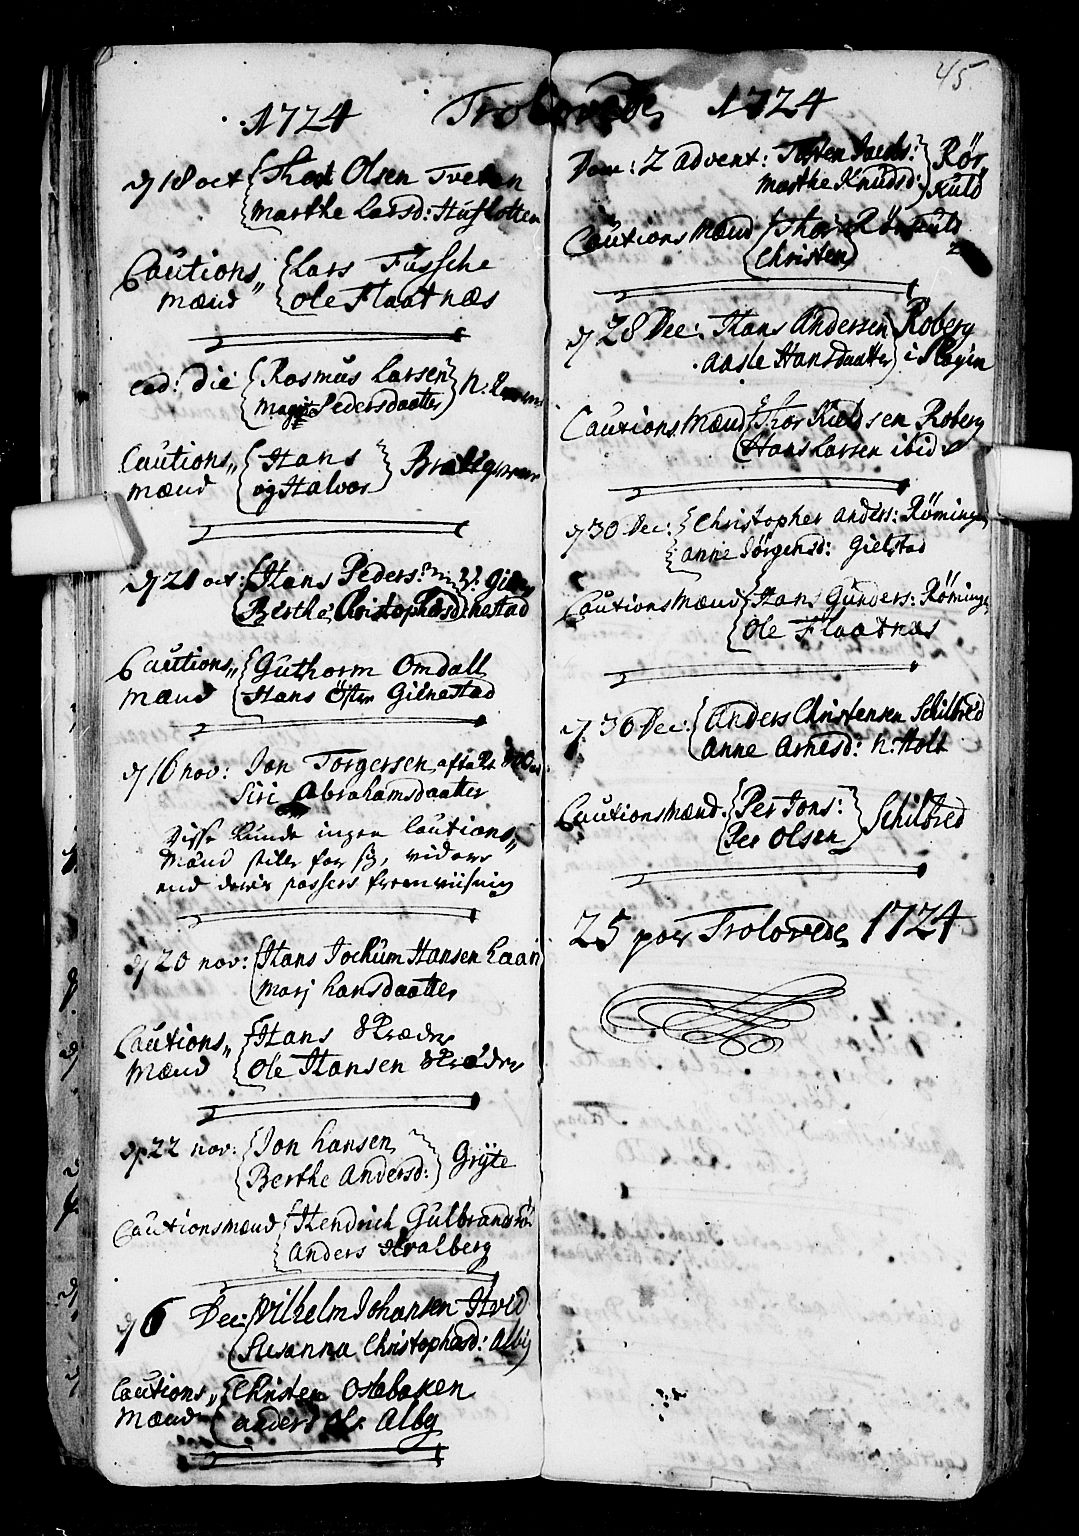 1724 Trolovede 1724
45.
d 18 oct Thor Olsen Tveten
Marthe Larsd: Huslotten
Cautions Lars Fussche
mænd Ole Flaatnæs
eod: die Rasmus Larsen
Pedersdaatter
Cautions Hans
mænd og Halvor
d 21 oct: Hans Peders:
Berthe Christophersd
Cautions Guthorm Omdall
mænd Hans Öster Gilnestad
d 16 nov: Jon Torgersen
Siri Abrahamsdaatter
Disse kunde ingen Cautions
Mænd stille for sig, videre
end deris passers fremviisning
d 20 nov: Hans Jochum Hansen Laan
Marj Hansdaatter
Cautions Hans Skræder
Mænd Ole Hansen Skræder
d 22 nov: Jon Hansen
Berthe Andersd: Gryte
Cautionsmænd Hendrich Gulbrands
Anders Hvalberg
d 6 Dec: Vilhelm Johansen Hvid
Susanna Christophersd: Alby
Cautions Christen Osebaken
Mænd anders Ols: Alby
Dom: 2 advent: Testen Jacobs: Rør
Marthe Knudsd: kuld
Cautions Mænd Thor Rørkuld
Christen
d 28 Dec: Hans Andersen Roberg
Aasle Hansdaatter i Slagen
Cautions Mænd Thor Kieldsen Roberg
Hans Larsen ibid
d 30 Dec: Christopher Anders: Røminge
Anne Jørgensd: Gielstad
Cautions Mænd Hans Gunders: Røminge
Ole Flaatnæs
d 30 Dec: Anders Christensen Schilbred
Anne Arnesd: N: Holt
Cautions Mænd Per Jons:
Per Olsen Schilbred
25 par Trolovede 1724